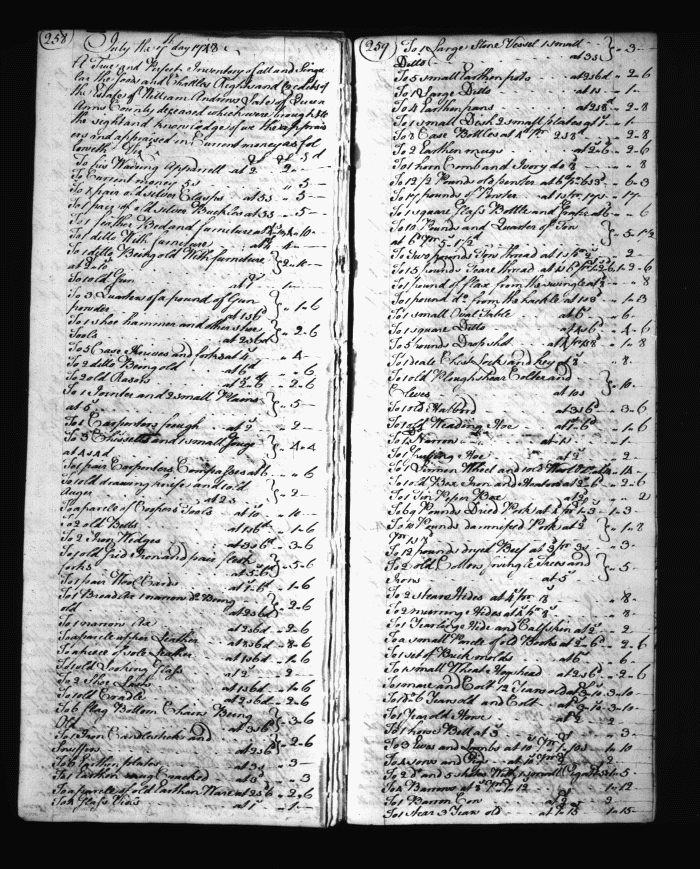 258
July the 4th day 1748
A True and Perfect Inventory of all and Singu
lar the Goods and Chattles Rights and Credits of
the Estate of William Andrews Late of Queen
Anns County deceased which were brought to
the sight and knowledge of us the apprais
ers and appraised in Current money as fol
loweth Viz
To his Wearing Apparell at 2 2
To Current money 5s 5
To 1 pair old silver Clasps at 3s 3
To 1 pair of old silver Buckles at 5s 5
To 1 feather Bed and furniture
To 1 ditto With furniture
To 1 ditto Being old With furniture
To 1 old Gun at 1
To 3 Quarters of a pound of Gun
powder at 1s6d 1-6
To 1 shoe hammer and other shoe
Tools at 2s6d 2-6
To 5 Case Knives and forks at 4 4
To 2 ditto Being old at 6d 6
To 2 old Rasors at 2-6 2-6
To 1 Jointer and 2 small Plains
at 5 5
To 1 Carpenters plough at 2 2
To 3 Chissells and 1 small Gouge
at 4s4d 4-4
To 1 pair Carpenters Compasses at 6 6
To 1 old drawing knife and 1 old
Auger at 2s 2
To a parcele of Coopers Tools at 10 10
To 2 old Bells at 1s6d 1-6
To 2 Iron Wedges at 3s6d 3-6
To 1 old Grid Iron and pair flesh
forks at 5s6d 5-6
To 1 pair Wool Cards at 1-6 1-6
To 1 Broad Ax 1 narrow do Being
old at 2s6d 2-6
To 1 narrow Ax at 2s6d 2-6
To a parcele upper Leather 8-6
To a piece of sole Leather at 1s6d 1-6
To 1 old Looking Glass at 2 2
To 2 Shoe at 1s6d 1-6
To 1 old Cradle at 2s6d 2-6
To 6 flag Bottom Chairs Being
Old at 3s6d 3-6
To 1 Iron Candlestick and
Snuffers at 2s6d 2-6
To 6 Earthen plates at 3s 3
To 1 Earthen mug Cracked at 3d 3
To a parcele of old Earthen Ware at 2s6 2-6
To 2 Glass Vials at 1 1
259
To 1 Large Stone Vessel 1 small
Ditto at 3s 3
To 5 small Earthen pots at 2s6d 2-6
To 1 Large Ditto at 1s 1
To 4 Earthen pans at 2s8d 2-8
To 1 small Dish 2 small plates at 1 1
To 2 Case Bottles 2-8
To 2 Earthen mugs at 2-6 2-6
To 1 horn Comb and Ivory do 8
To 12 1/2 Pounds of pewter 6-3
To 17 pounds of Pewter at 1s pr 17s 17
To 1 square Glass Bottle and at 6 6
To 10 Pounds and Quarter of Iron
at 6d pr 5-1 1/2 5-1 1/2
To Two pounds Tow thread 2
To 15 pounds
To 1 pound of flax from the swingle at 8
To 1 pound do from the hackle at 1s3 1-3
To 1 small Oval Table at 6 6
To 1 square Ditto at 4s6 4-6
To 5 pounds Drop shot 1-8
To 1 Chest Lock and key at 8 8
To 1 old Ploughshear Colter and
Clevis at 10s 10
To 1 old Halberd at 3s6d 3-6
To 1 old Weading Hoe at 1-6 1-6
To 1 Do Narrow at 1s 1
To 1 Grubbing Hoe at 2 2
To 1 Linnen Wheel and 1 old Wool Do at 14
To 1 old Box Iron and Heaters at 2s6 2-6
To 1 Tin Peper Box at 2d 2
To 69 Pounds Dried Pork
To 10 Pounds damnified Pork at 2
pr 1-8 1-8
To 12 pounds dryed Beef at 3d pr 3s 3
To 2 old Collers Swingle Trees and
Irons at 5 5
To 2 steare Hides 8
To 2 murring Hides 8
To 1 Yearling Hide and Calf skin at 2 2
To a small Parcele of old Books at 2-6 2-6
To 1 set of Brick molds at 6 6
To a small Wheat Hogshead at 2s6d 2-6
To 1 mare and Colt 12 Years old at 3-10 3-10
To 1 do 6 Years old and Colt 3-10
To 1 Year old Horse at 2 2
To 1 horse Bell at 3 3
To 3 Ews and Lambs at 10 pr 1-10 1-10
To 4 sows and
To 2 do and 5 shotes With 1 small 1-5
To 4 Barrows 1-12
To 1 Barron Cow at 2 2
To 1 Stear 3 Year old at 1-15 1-15